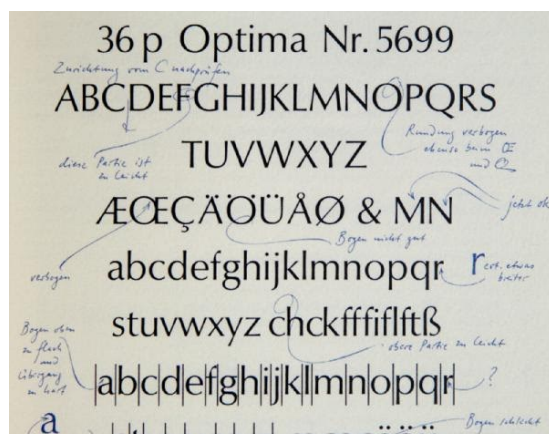 36 p Optima Nr. 5699
Zurichtung vom C nachprüfen
ABCDEFGHIJKLMNOPQRS
Rundung verbogen
ebenso beim Œ
und Q
diese Partie ist
zu leicht
TUVWXYZ
ÆŒÇÄÖÜÅØ & MN
jetzt ok
Bogen nicht gut
verbogen
abcdefghijklmnopqr
r evt. etwas
breiter
stuvwxyz chckfffiflftß
obere Partie zu leicht
Bogen oben
zu flach
und
Übergang
zu hart
abcdefghijklmnopqr
?
a
Bogen schlecht